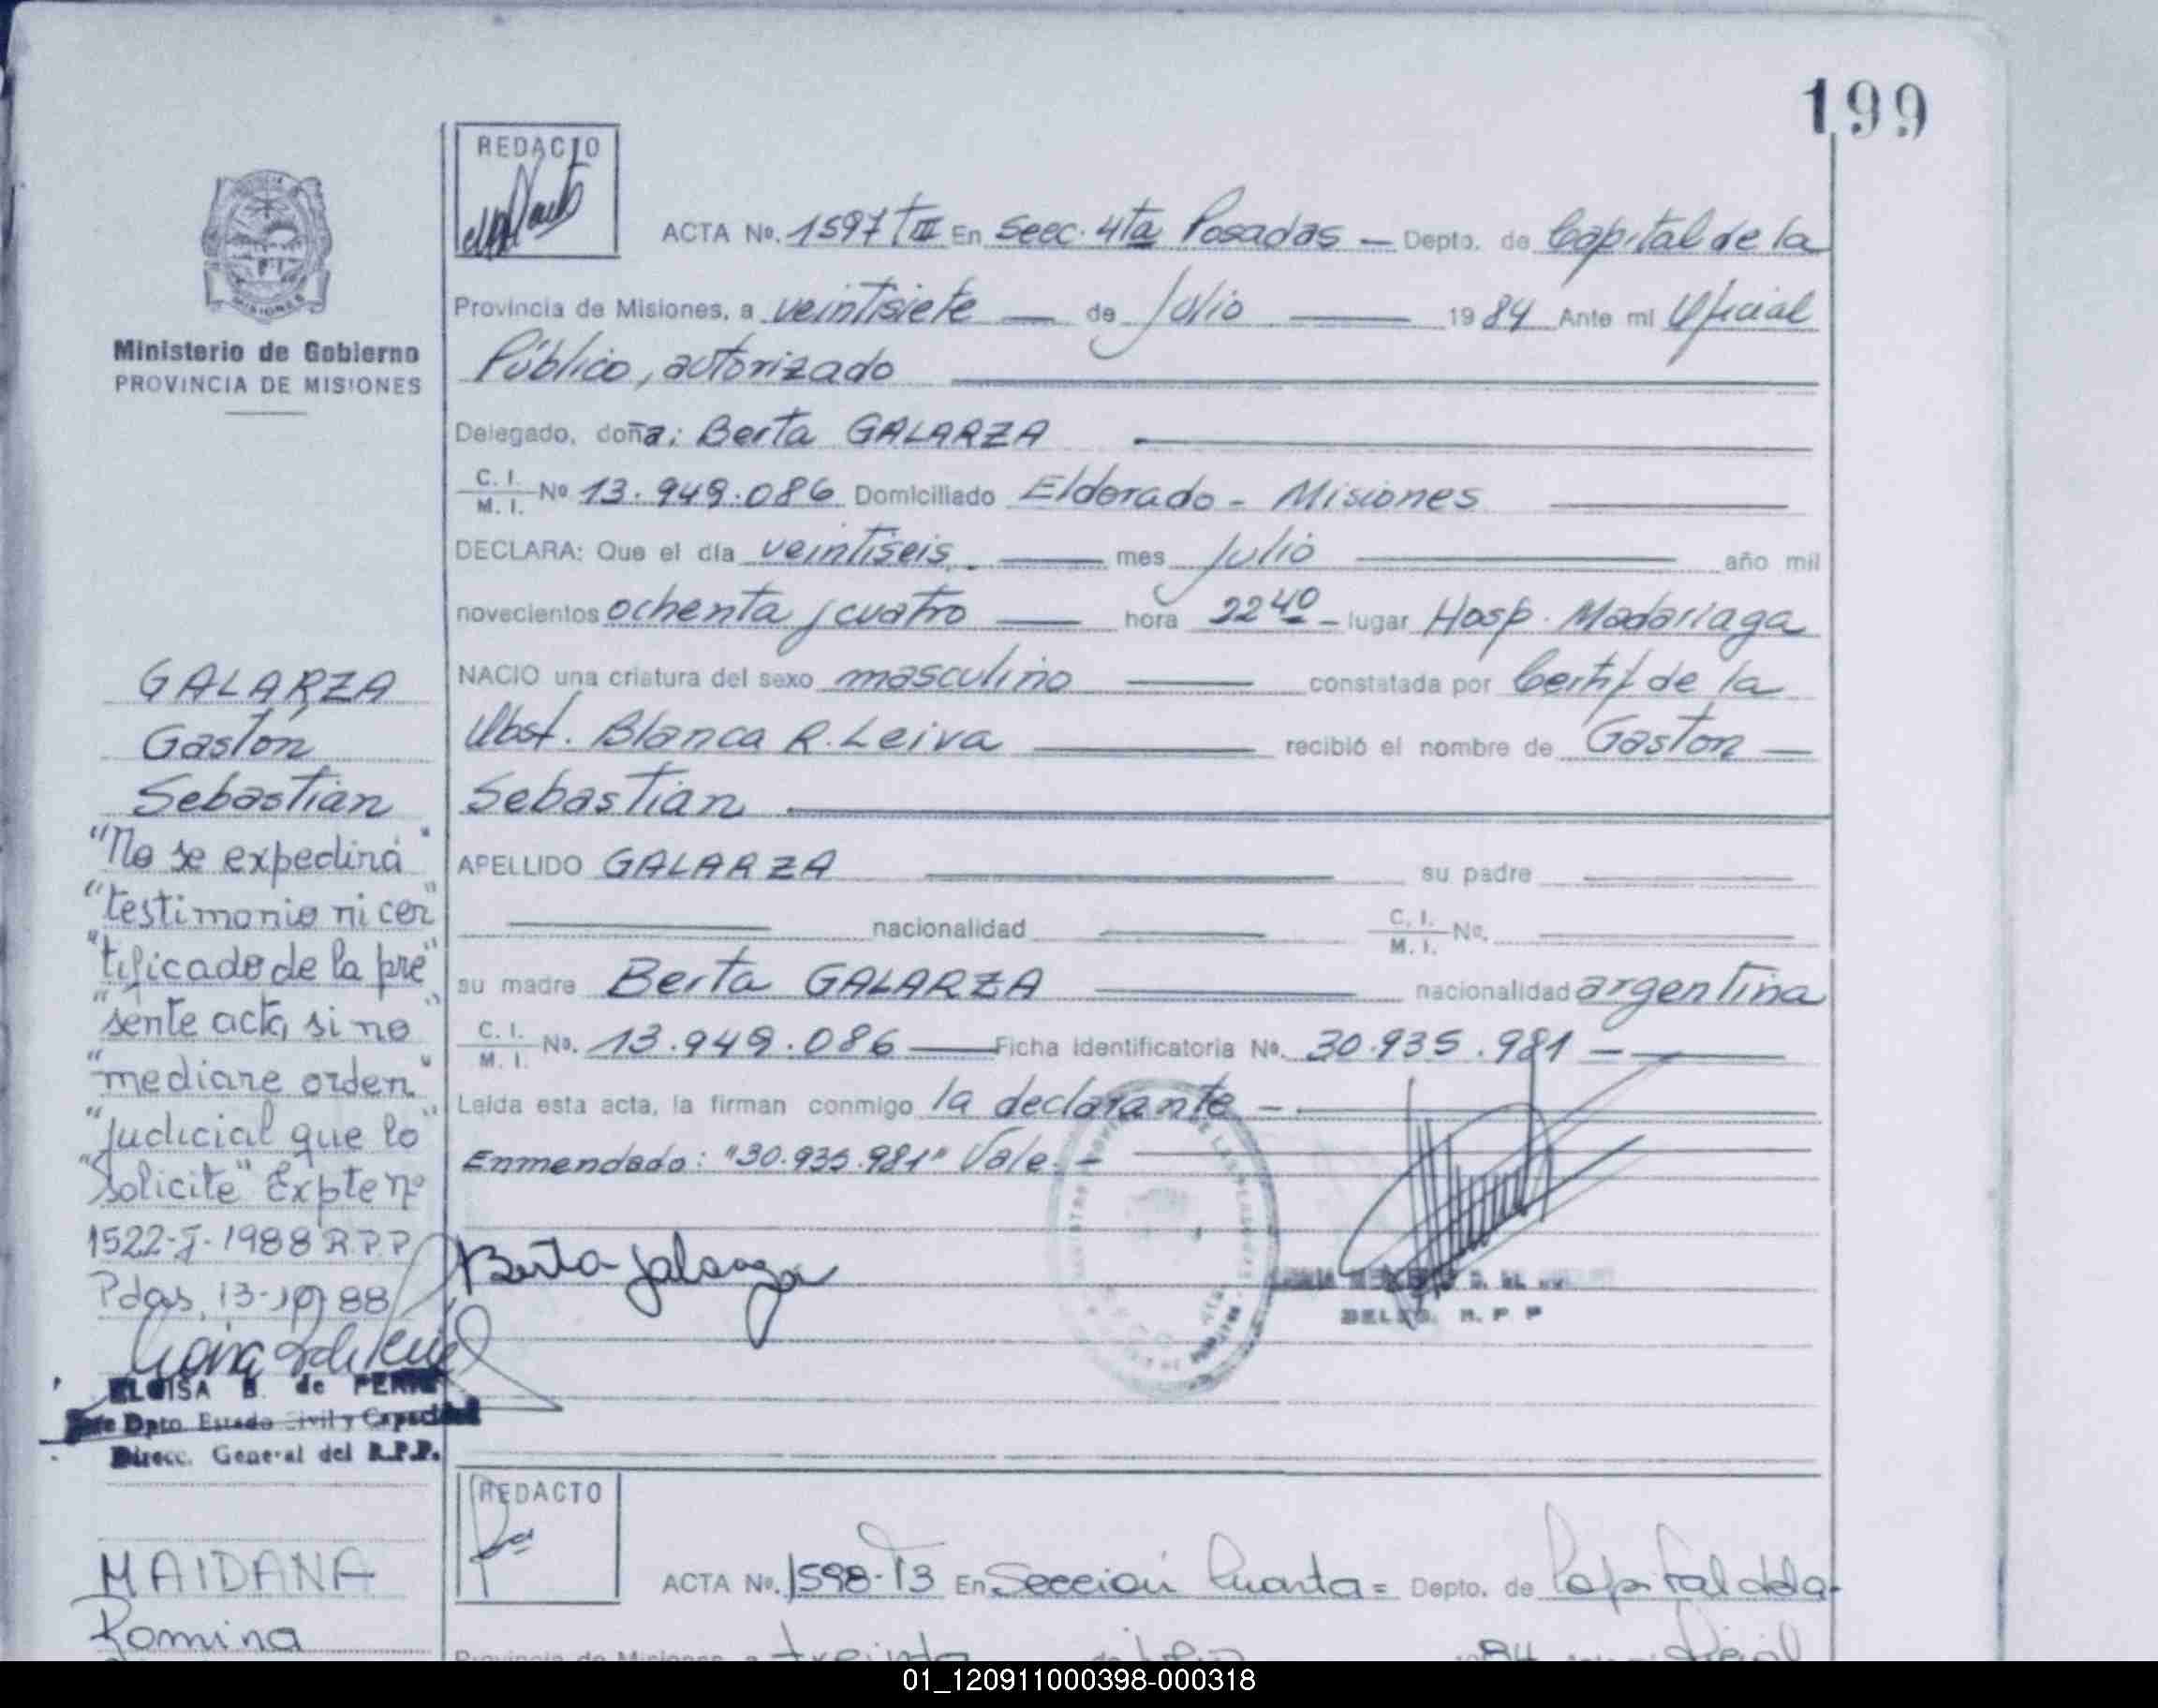 199
REDACTO
ACTA No. 1597 TIII En Secc. 4ta Posadas - Depto. de Capital de la
Provincia de Misiones, a veintisiete de Julio 1984 Ante mi Oficial
Público, autorizado
Delegado, doña: Berta GALARZA
C. I. M. I. No 13.949.086 Domiciliado Eldorado - Misiones
DECLARA: Que el día veintiseis. mes Julio año mil
novecientos ochenta y cuatro hora 22 40 - lugar Hosp. Madariaga
NACIO una criatura del sexo masculino constatada por Certif de la
Obst. Blanca R. Leiva recibió el nombre de Gastón
Sebastian
APELLIDO GALARZA su padre
nacionalidad C. I. M. I. No.
su madre Berta GALARZA nacionalidad argentina
C. I. M. I. No. 13.949.086 Ficha identificatoria No. 30.935.981 -
Leída esta acta, la firman conmigo la declarante -
Enmendado: "30.935.981" Vale. -
Berta Galarza
R. P. P
Ministerio de Gobierno
PROVINCIA DE MISIONES
GALARZA
Gastón
Sebastian
"No se expedirá"
"testimonio ni cer"
"tificado de la pre"
"sente acta, si no"
"mediare orden"
"judicial que lo"
"solicite" Expte nº
1522-J-1988 R.P.P
Pdas, 13-10-88
ELOISA B. de
Dpto Estado Civil y Capacidad
Direcc. General del R.P.P.
REDACTO
ACTA No. 1598-T3 En Sección Cuarta = Depto. de Capital de la-
Provincia de Misiones, a treinta de Julio 1984 Ante mi Oficial
MAIDANA
Romina
01_120911000398-000318